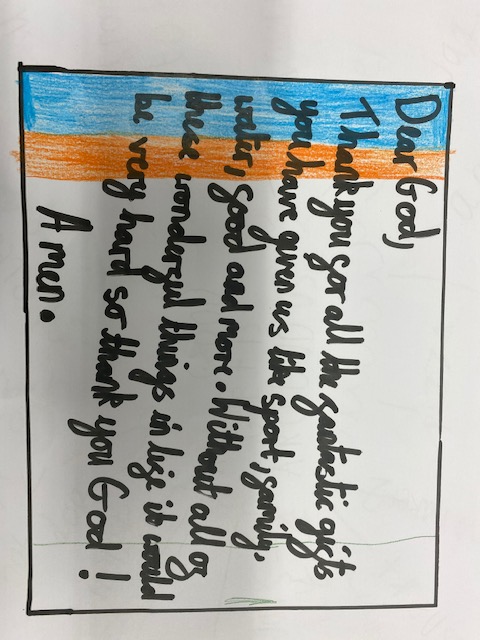 Dear God,
Thank you for all the fantastic gifts
you have given us like sport, family,
water, food and more. Without all of
these wonderful things in life it would
be very hard so thank you God!
Amen.